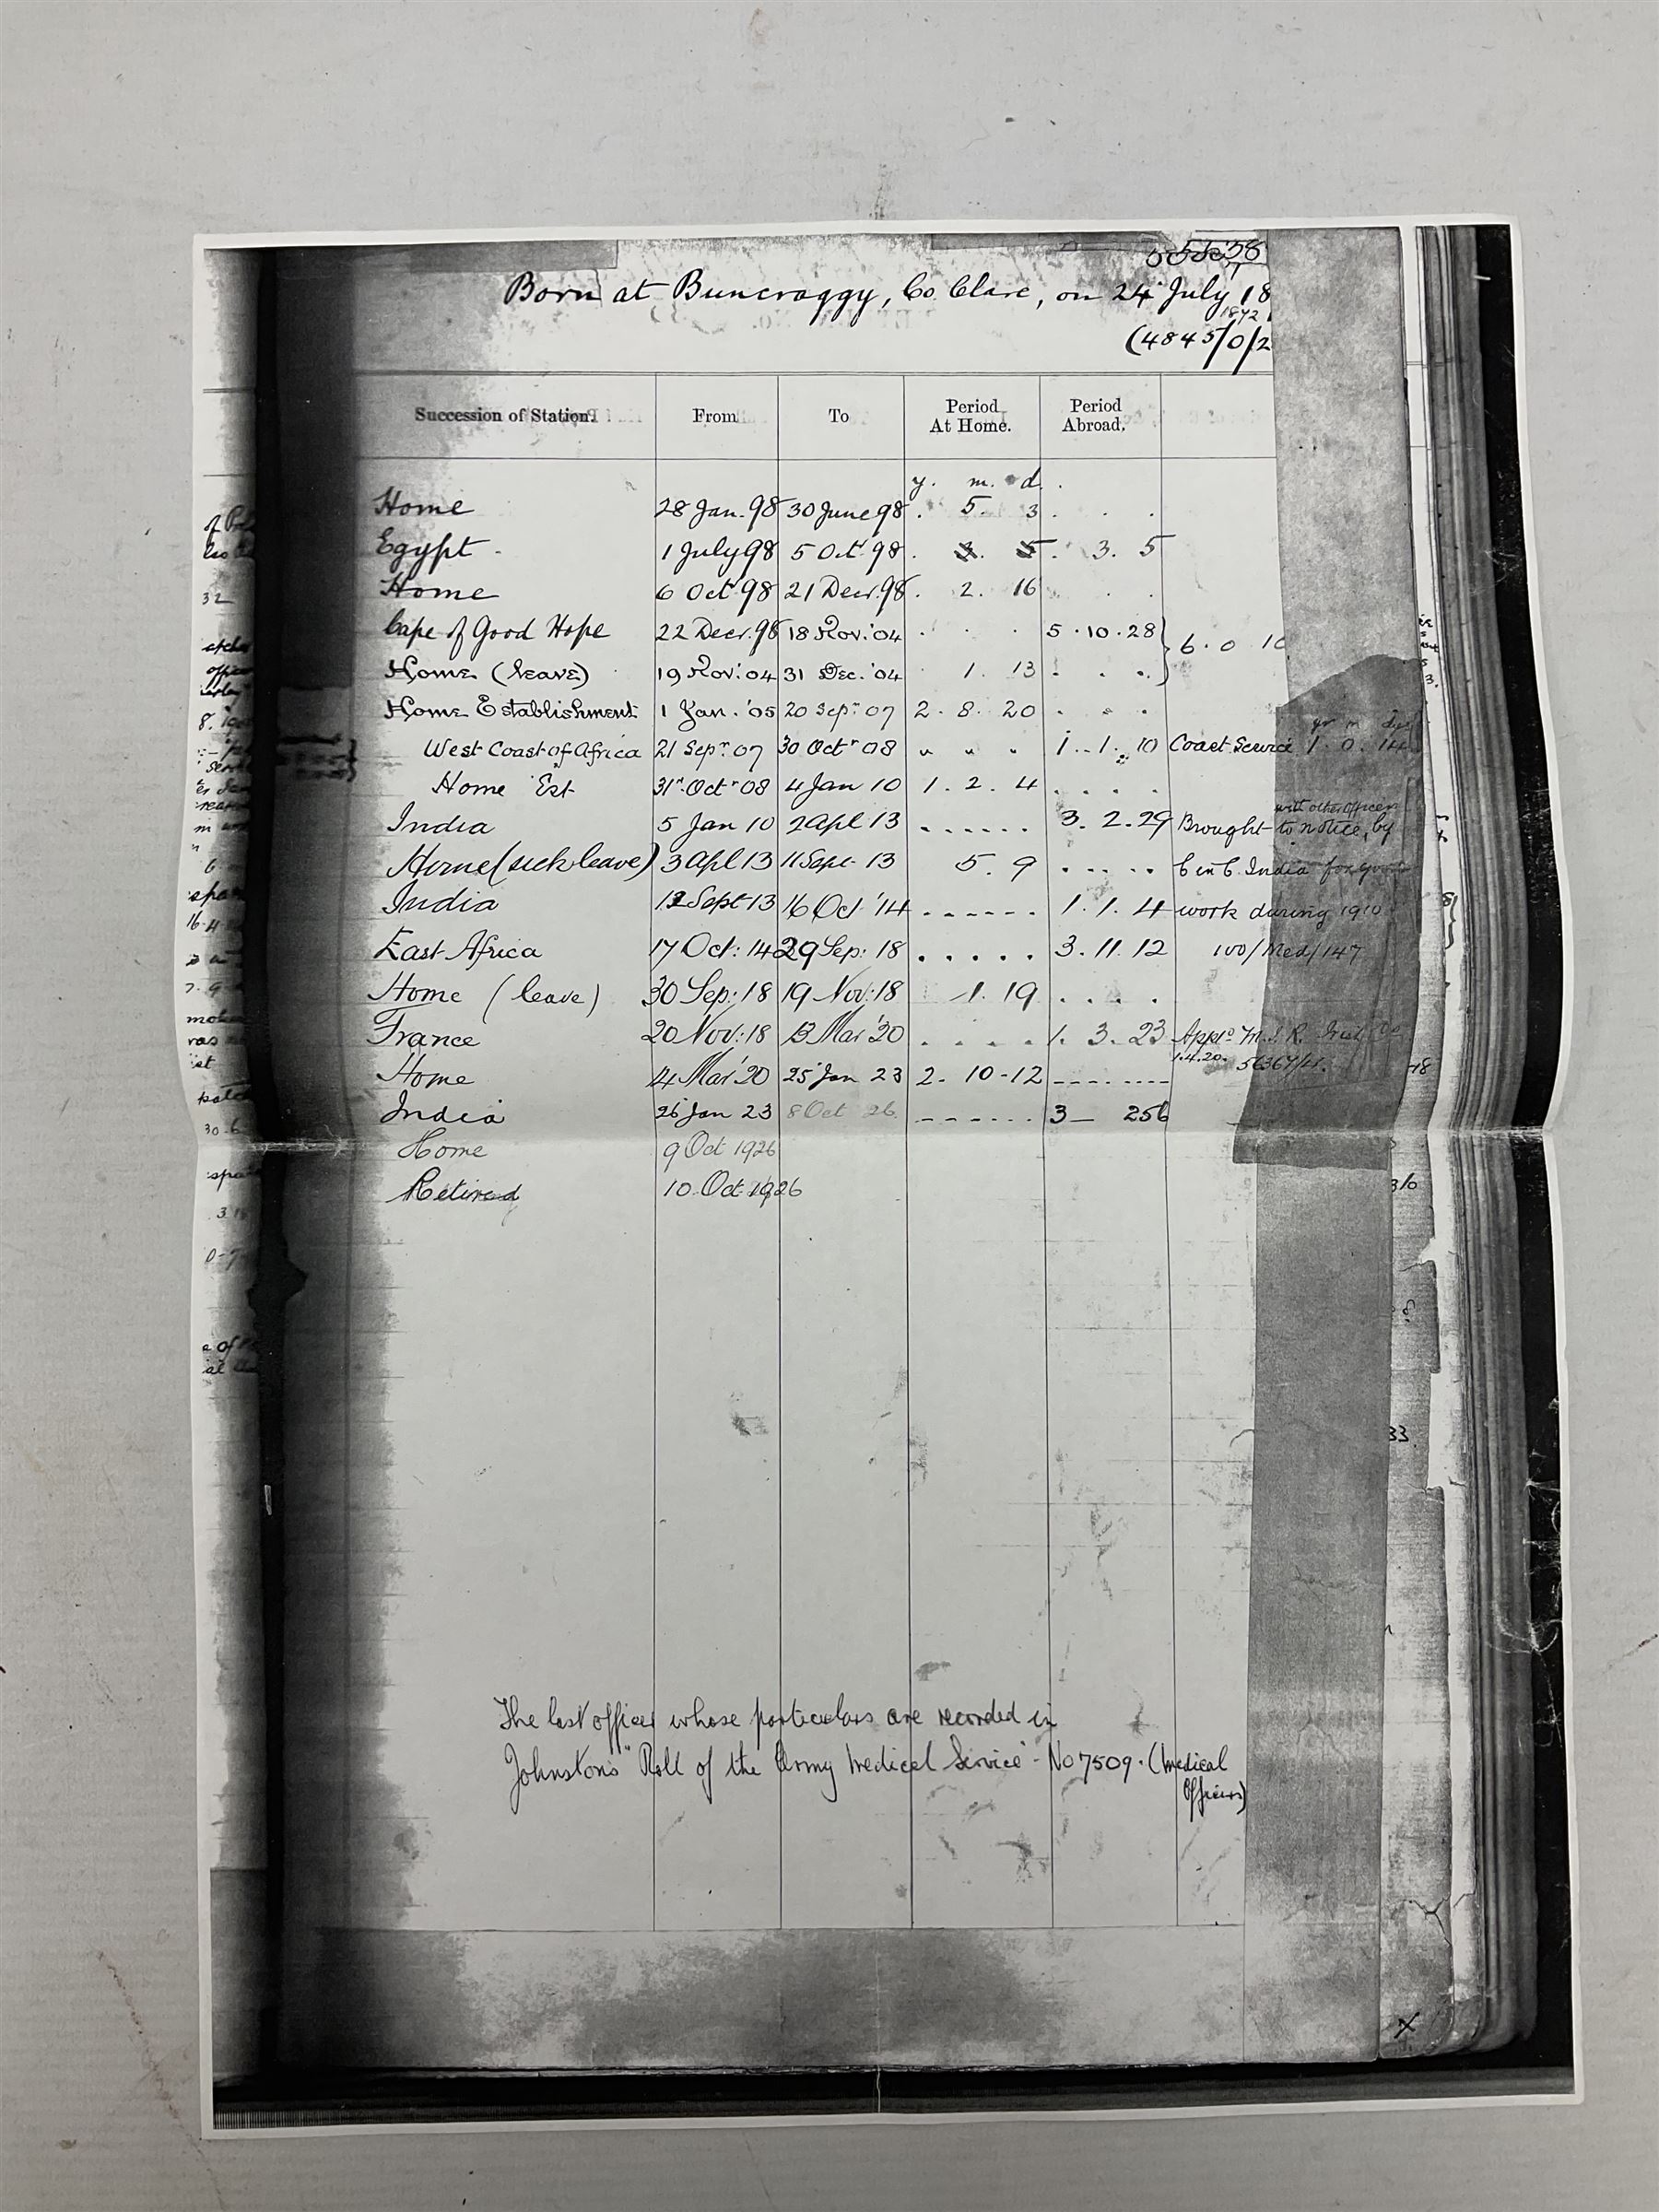 Born at Buncraggy, Co. Clare, on 24 July 18
1872
(4845/0/2
Succession of Station. From To Period At Home. Period Abroad.
y. m. d.
Home 28 Jan. 98 30 June 98 . 5. 3 . . .
Egypt - 1 July 98 5 Oct. 98 . 3. 5 . 3. 5
Home 6 Oct. 98 21 Decr. 98 . 2. 16 . . .
Cape of Good Hope 22 Decr. 98 18 Nov. '04 . . . 5 . 10 . 28 } 6 . 0
Home (leave) 19 Nov: 04 31 Dec. '04 1. 13 . . .
Home Establishment 1 Jan. '05 20 Sepr. 07 2. 8. 20 . . .
yr m dys
West Coast of Africa 21 Sepr. 07 30 Octr 08 " " " 1. 1. 10 Coast Service 1. 0. 14
Home Est 31st Octr 08 4 Jan 10 1. 2. 4 . . . .
with other officers
India 5 Jan 10 2 Apl 13 . . . . . . 3. 2. 29 Brought to notice, by
Home (sick leave) 3 Apl 13 11 Sept 13 5. 9 . . . . . C in C. India for good
India 12 Sept 13 16 Oct '14 . . . . . . 1. 1. 4 work during 1910
East Africa 17 Oct: 14 29 Sep: 18 . . . . . 3. 11. 12 100/Med/147
Home (leave) 30 Sep: 18 19 Nov: 18 1. 19 . . . .
France 20 Nov: 18 13 Mar '20 . . . . 1. 3. 23
1.4.20.
Home 14 Mar '20 25 Jan 23 2. 10-12 --------
India 26 Jan 23 8 Oct 26 ------ 3 — 256
Home 9 Oct 1926
Retired 10. Oct. 1926
The last officer whose particulars are recorded in
Johnston's "Roll of the Army Medical Service" - No 7509. (Medical
Officers)